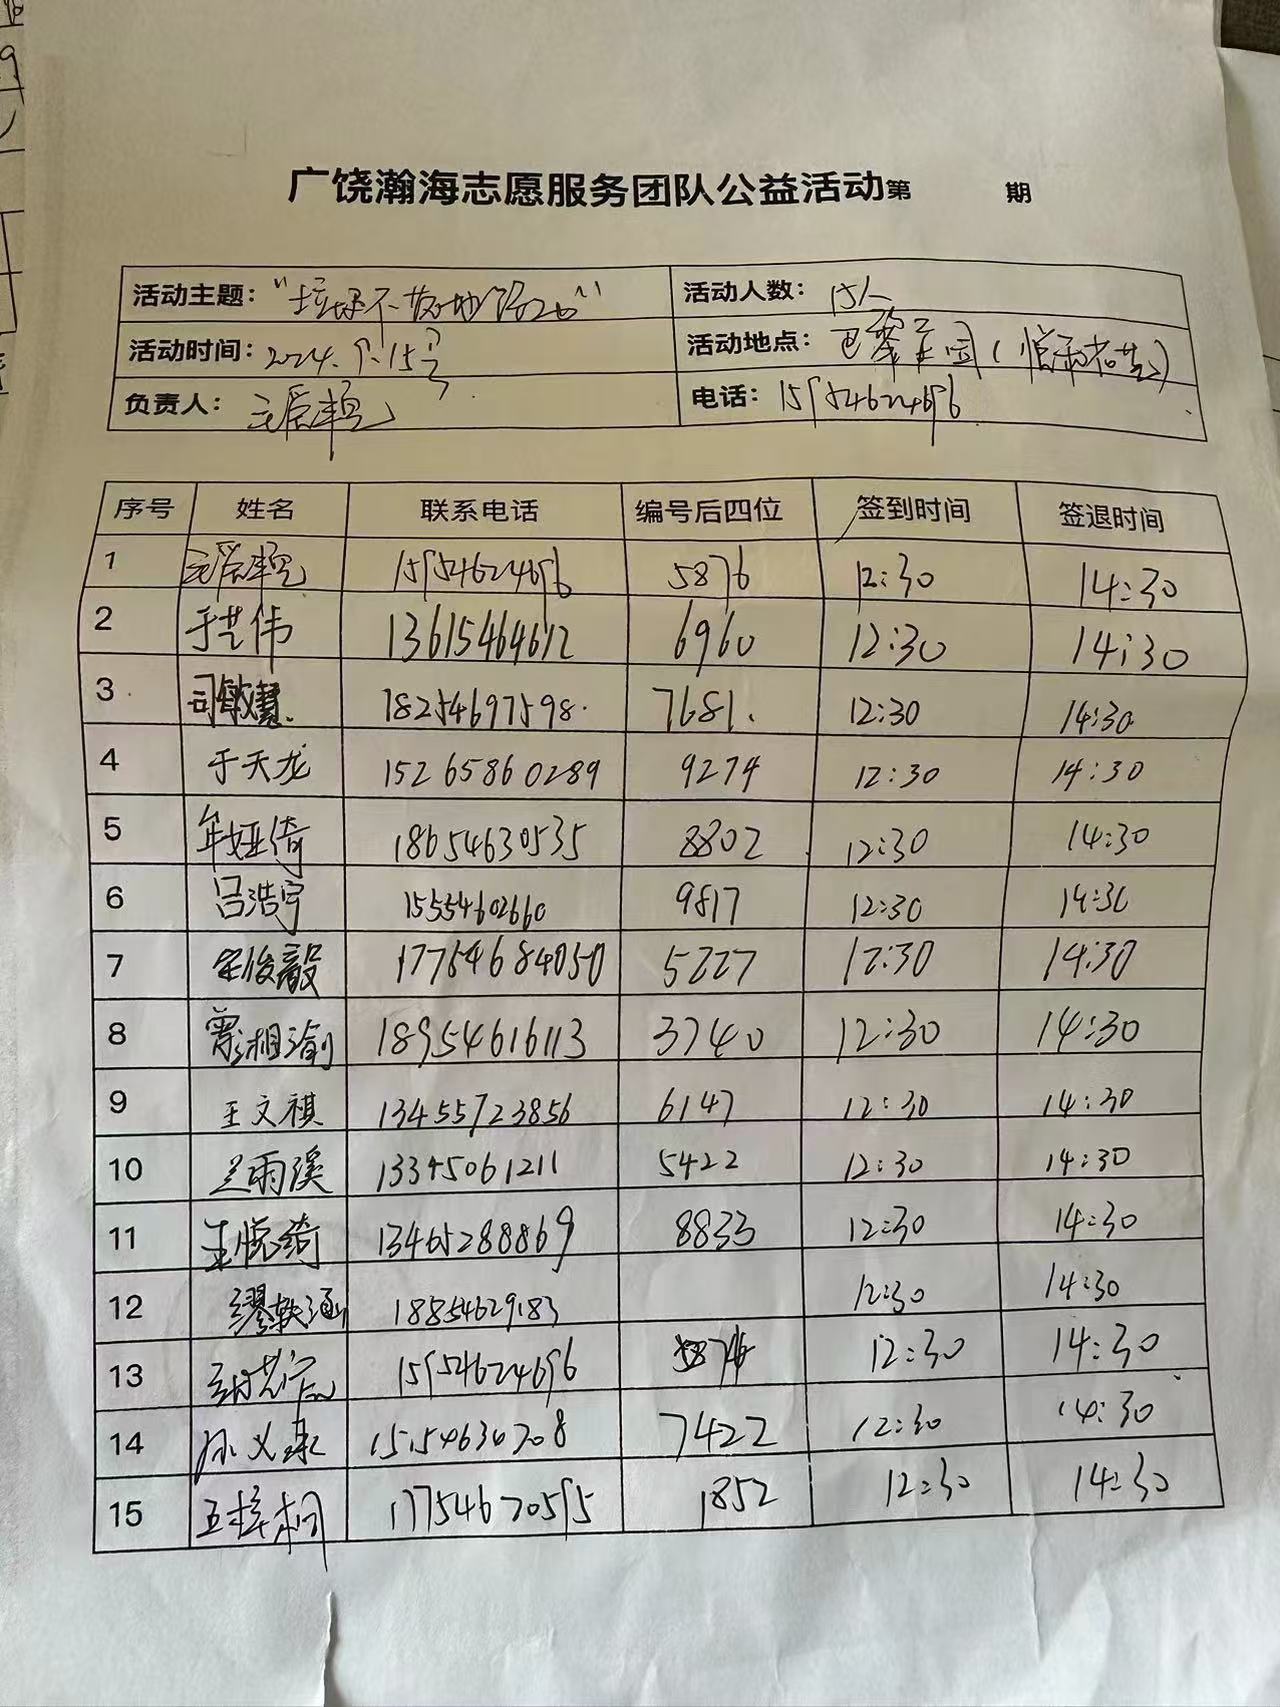 广饶瀚海志愿服务团队公益活动第 期
活动主题：“垃圾不落地 ” 活动人数：15人
活动时间：2024. 15号 活动地点：巴黎 园（ ）
负责人： 电话：15954624696
序号 姓名 联系电话 编号后四位 签到时间 签退时间
1 15954624696 5876 12:30 14:30
2 于艺伟 13615464612 6960 12:30 14:30
3 司敏慧 18254697598 7681 12:30 14:30
4 于天龙 15265860289 9274 12:30 14:30
5 牟娅倚 18654630535 8802 12:30 14:30
6 吕浩宇 15554602660 9817 12:30 14:30
7 俊毅 17754684050 5227 12:30 14:30
8 相渝 18954616113 3740 12:30 14:30
9 王文祺 13455723856 6147 12:30 14:30
10 兰雨溪 13345061211 5422 12:30 14:30
11 王悦绮 13465288869 8833 12:30 14:30
12 缪轶涵 18854629183 12:30 14:30
13 15954624696 5876 12:30 14:30
14 孙义 15154634708 7422 12:30 14:30
15 王梓桐 17754670595 1852 12:30 14:30